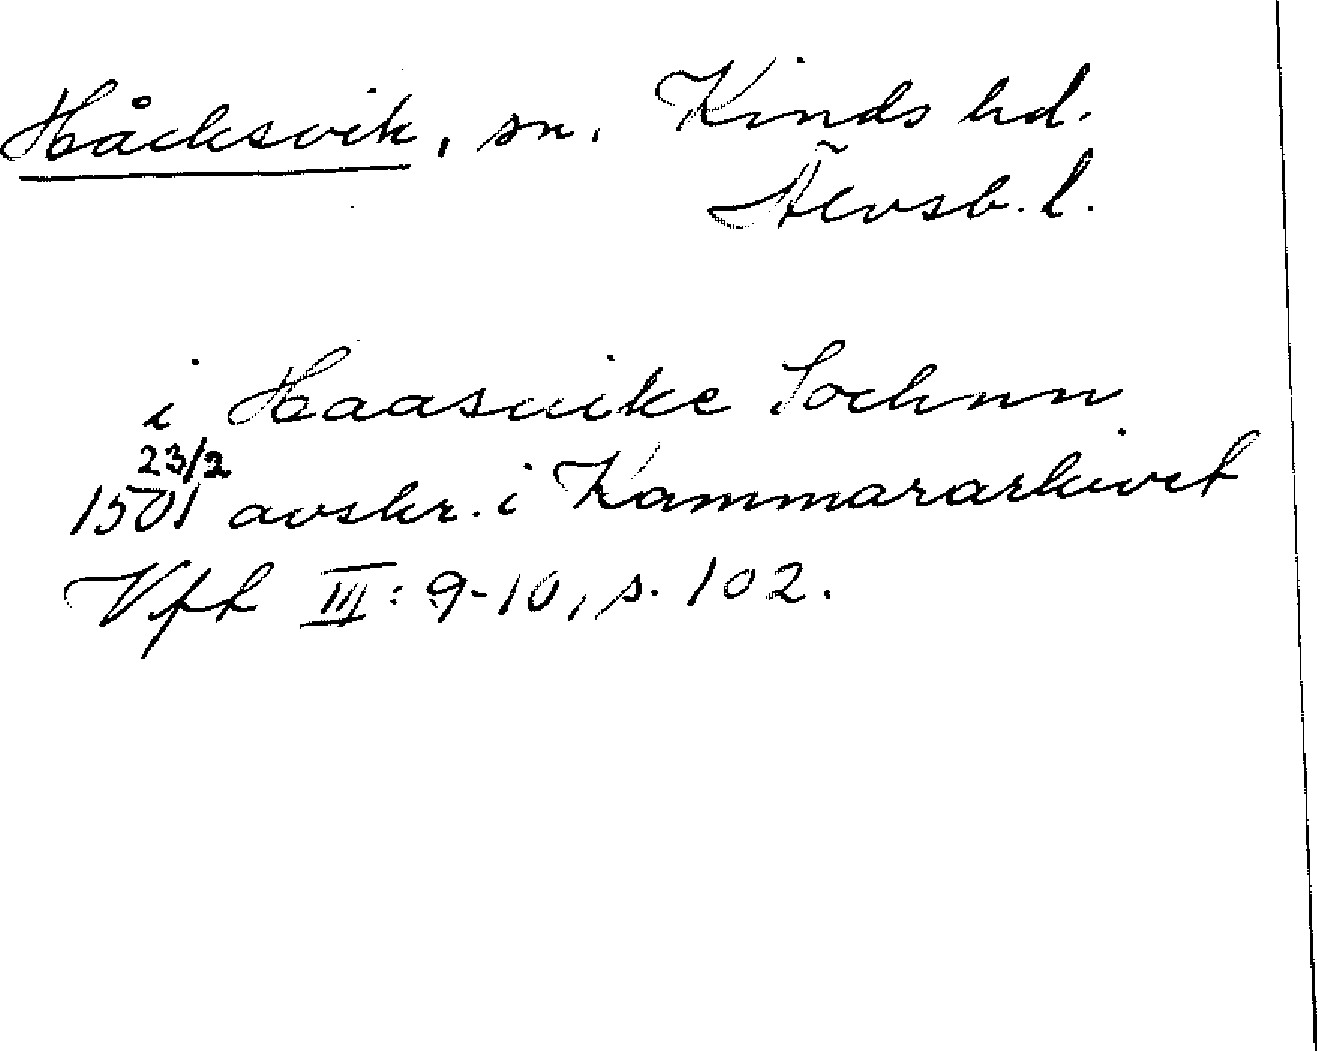 Håcksvik, sn. Kinds hd.
Älvsb. l.
i Haasuike Sochnn
23/2
1501 avskr. i Kammararkivet
Vfh III: 9-10, s. 102.